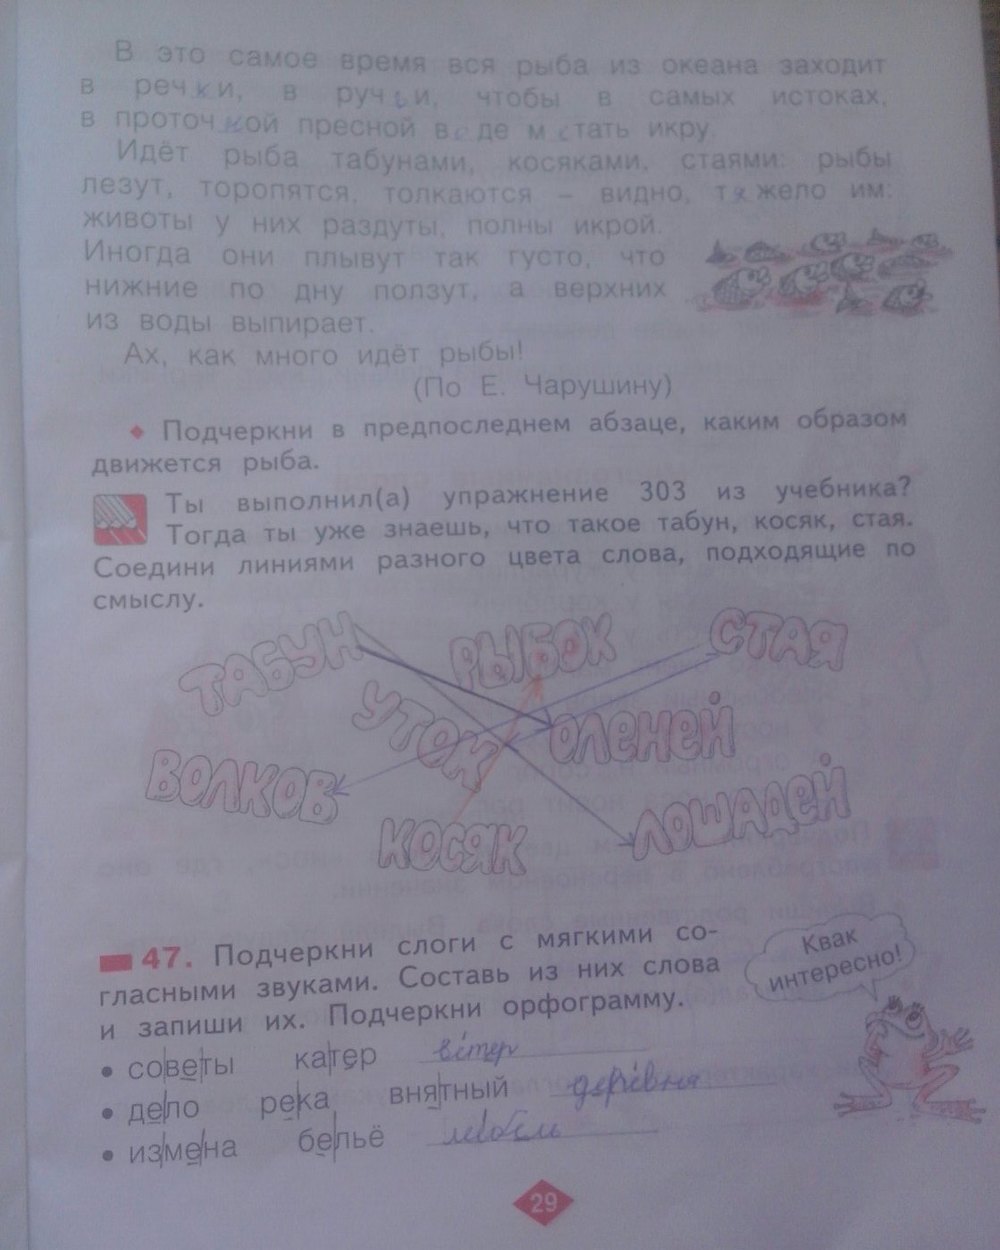 В это самое время вся рыба из океана заходит
в речки, в ручьи, чтобы в самых истоках,
в проточной пресной воде метать икру.
Идёт рыба табунами, косяками, стаями: рыбы
лезут, торопятся, толкаются – видно, тяжело им:
животы у них раздуты, полны икрой.
Иногда они плывут так густо, что
нижние по дну ползут, а верхних
из воды выпирает.
Ах, как много идёт рыбы!
(По Е. Чарушину)
Подчеркни в предпоследнем абзаце, каким образом
движется рыба.
Ты выполнил(а) упражнение 303 из учебника?
Тогда ты уже знаешь, что такое табун, косяк, стая.
Соедини линиями разного цвета слова, подходящие по
смыслу.
ТАБУН РЫБОК СТАЯ
УТОК ОЛЕНЕЙ
ВОЛКОВ
КОСЯК ЛОШАДЕЙ
47. Подчеркни слоги с мягкими со-
гласными звуками. Составь из них слова
и запиши их. Подчеркни орфограмму.
Квак
интересно!
• советы катер ветер
• дело река внятный деревня
• измена бельё мебель
29